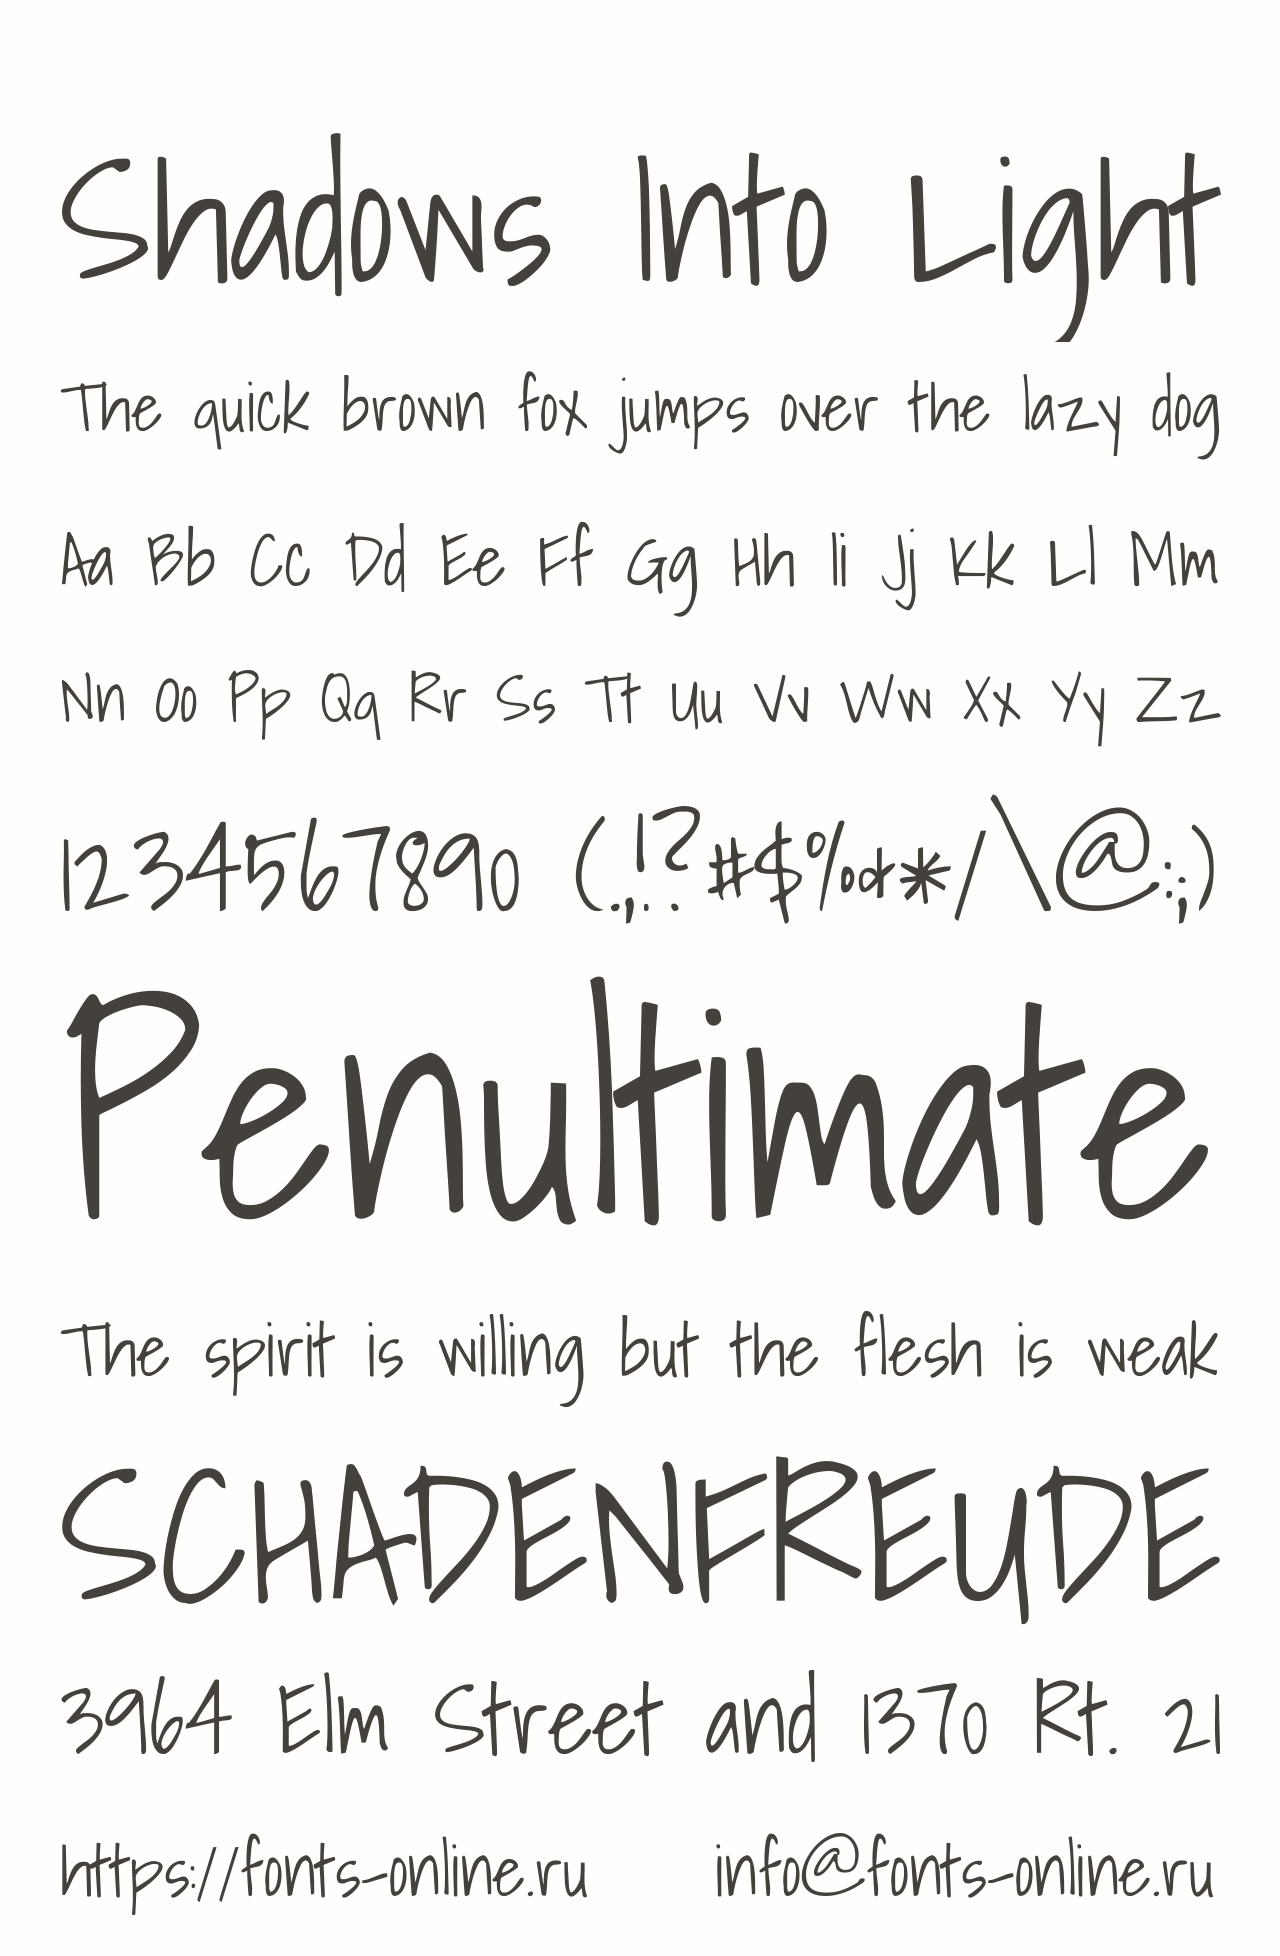 Shadows Into Light
The quick brown fox jumps over the lazy dog
Aa Bb Cc Dd Ee Ff Gg Hh Ii Jj Kk Ll Mm
Nn Oo Pp Qq Rr Ss Tt Uu Vv Ww Xx Yy Zz
1234567890 (.,!?#$%&*/\@:;)
Penultimate
The spirit is willing but the flesh is weak
SCHADENFREUDE
3964 Elm Street and 1370 Rt. 21
https://fonts-online.ru info@fonts-online.ru